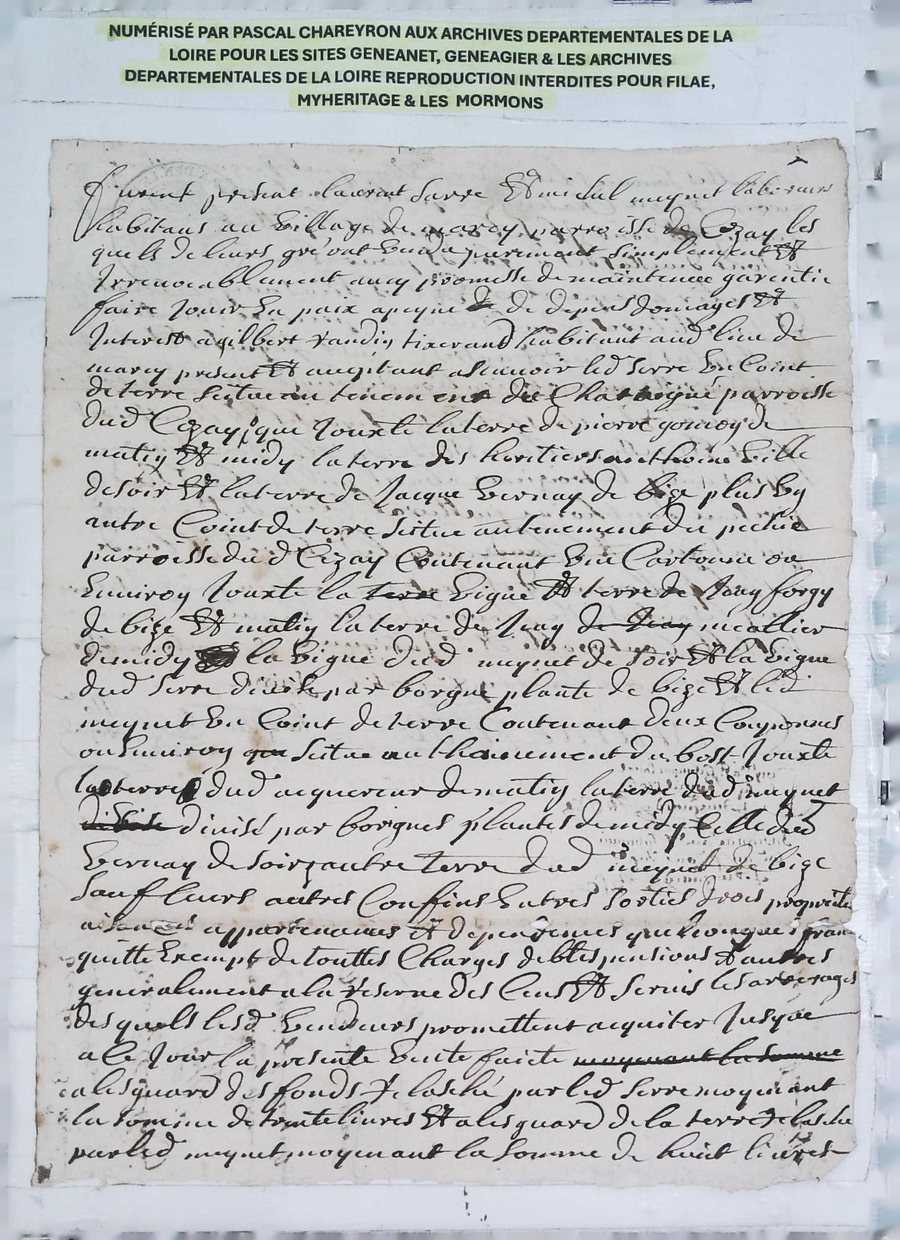 NUMÉRISÉ PAR PASCAL CHAREYRON AUX ARCHIVES DEPARTEMENTALES DE LA
LOIRE POUR LES SITES GENEANET, GENEAGIER & LES ARCHIVES
DEPARTEMENTALES DE LA LOIRE REPRODUCTION INTERDITES POUR FILAE,
MYHERITAGE & LES MORMONS
furent present laurent serre Et michel meynet laboureurs
habitans au village de marcy parroisse de Cezay les
quels de leurs gré ont vendu purement simplement Et
Irrevocablement avecq promesse de maintenue garentie
faire Jouir En paix a peyne de de depens domages Et
Interest a gilbert tixerand habitant aud lieu de
marcy present Et aceptant ascavoir led serre Un Coint
de terre situe au tenement de parroisse
dud Cezay que Jouxte la terre de pierre de
matin Et midy la terre des heritiers anthoine Ville
de soir Et la terre de Jacque bernay de bize plus Un
autre Coint de terre situe au tenement du
parroisse du d Cezay Contenant Une Cartonne ou
Environ Jouxte la terre vigne Et terre de Jean forgy
de bize Et matin la terre de Jean de Jean
de midy la vigne dud meynet de soir Et la vigne
dud serre divise par borgne plante de bize Et led
meynet Un Coint de terre Contenant deux Couponnes
ou Environ que situe au thenement du bost Jouxte
la terre dud acquereur de matin la terre dud meynet
divisé par borgnes plantes de midy Celle dud
bernay de soir autre terre dud meynet de bize
sauf leurs autres Confins Entres sorties drois proprieté
aisances appartenances Et dependences quelconques fran
quitte Exempt de touttes Charges debtes pensions Et autres
generalement a la reserve des Cens Et servis les arrerages
des quels lesd Vendeurs promettent acquiter Jusque
a Ce Jour la presente Vente faite moyenant la somme
a lesguard des fonds relasché par led serre moyenant
la somme de trente livres Et a lesguard de la terre relaschée
par led meynet moyenant la somme de huict livres